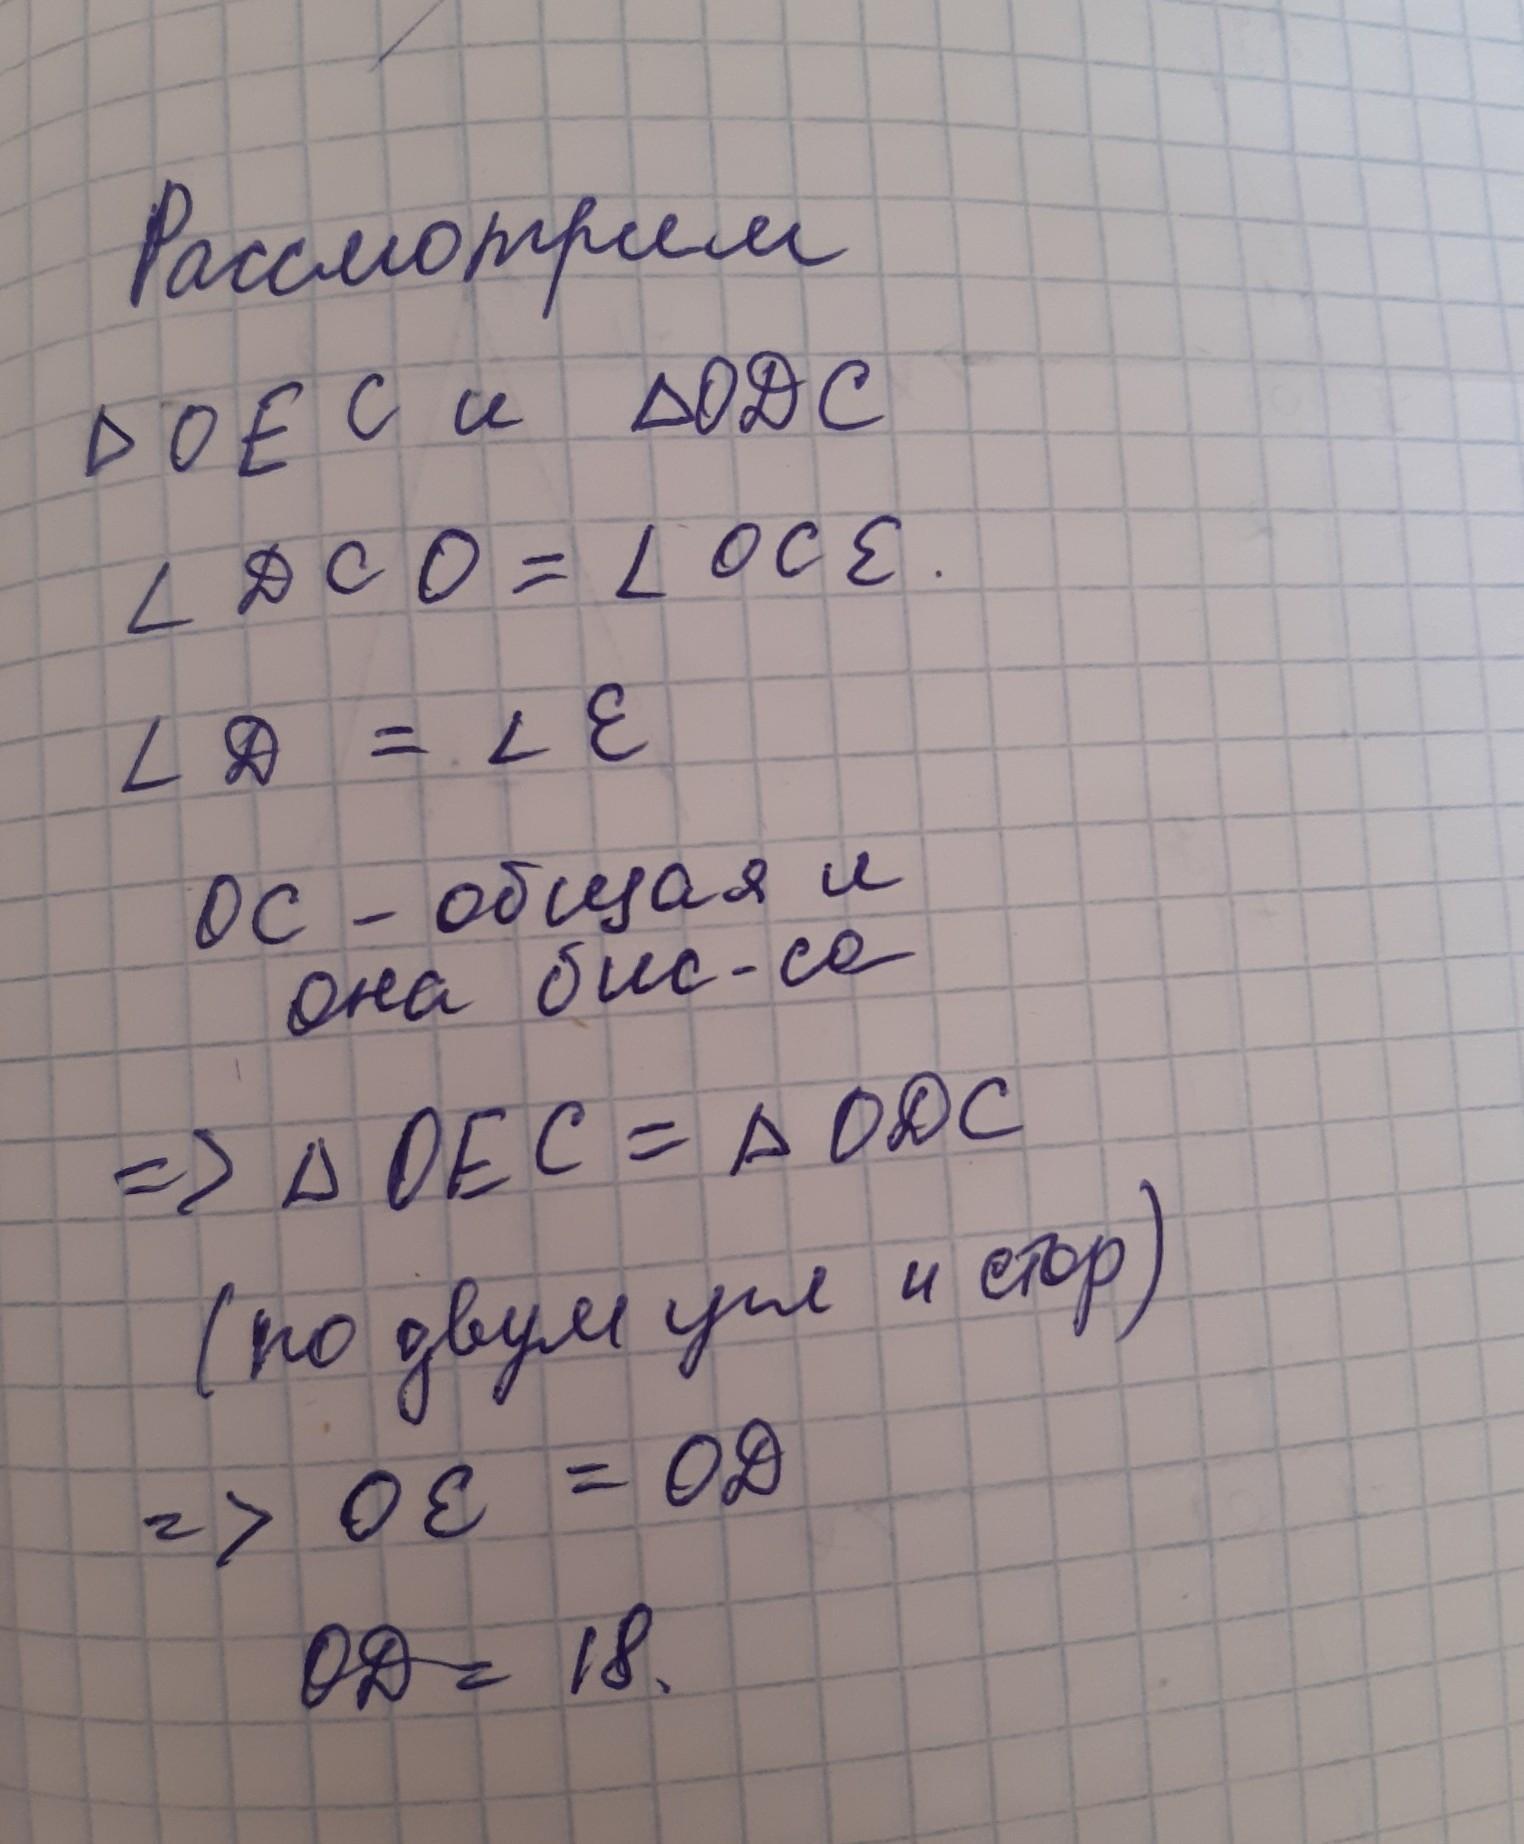 Рассмотрим
△OEC и △ODC
∠DCO = ∠OCE.
∠D = ∠E
OC – общая и
она бис-са
=> △OEC = △ODC
(по двум угл и стор)
=> OE = OD
OD = 18.